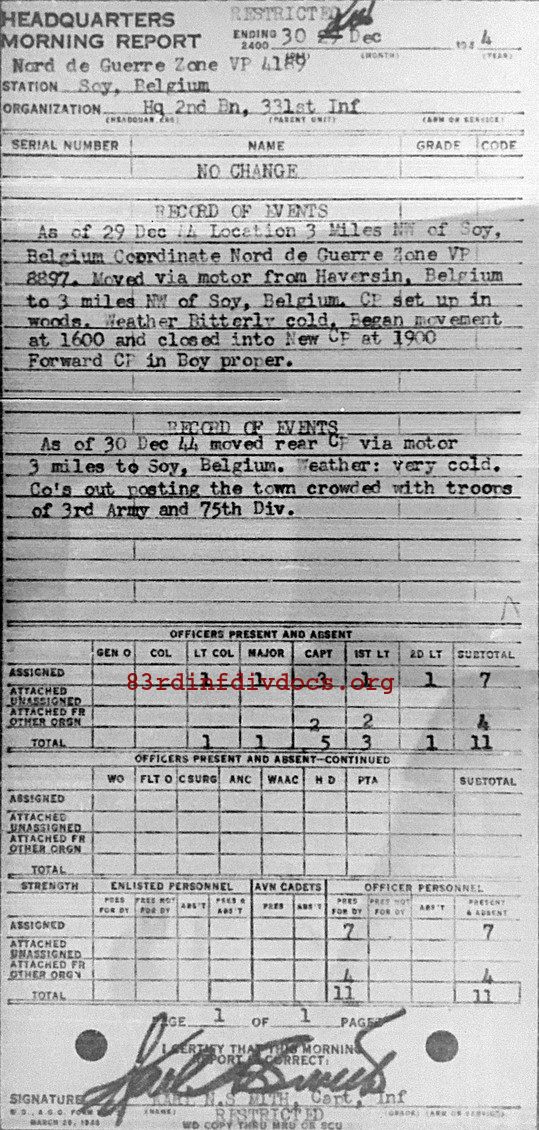 RESTRICTED
HEADQUARTERS
MORNING REPORT
ENDING 2400 30 Dec 194 4
(MONTH) (YEAR)
Nord de Guerre Zone VP 4189
STATION Soy, Belgium
ORGANIZATION Hq 2nd Bn, 331st Inf
(PARENT UNIT) (ARM OR SERVICE)
SERIAL NUMBER NAME GRADE CODE
NO CHANGE
RECORD OF EVENTS
As of 29 Dec 44 Location 3 Miles NW of Soy,
Belgium Coordinate Nord de Guerre Zone VP
8897. Moved via motor from Haversin, Belgium
to 3 miles NW of Soy, Belgium. CP set up in
woods. Weather Bitterly cold. Began movement
at 1600 and closed into New CP at 1900
Forward CP in Boy proper.
RECORD OF EVENTS
As of 30 Dec 44 moved rear CP via motor
3 miles to Soy, Belgium. Weather: very cold.
Co's out posting the town crowded with troops
of 3rd Army and 75th Div.
OFFICERS PRESENT AND ABSENT
GEN O COL LT COL MAJOR CAPT 1ST LT 2D LT SUBTOTAL
ASSIGNED 1 1 3 1 1 7
83rdinfdivdocs.org
ATTACHED UNASSIGNED
ATTACHED FR OTHER ORGN 2 2 4
TOTAL 1 1 5 3 1 11
OFFICERS PRESENT AND ABSENT—CONTINUED
WO FLT O C SURG ANC WAAC H D PTA SUBTOTAL
ASSIGNED
ATTACHED UNASSIGNED
ATTACHED FR OTHER ORGN
TOTAL
STRENGTH ENLISTED PERSONNEL AVN CADETS OFFICER PERSONNEL
PRES FOR DY PRES NOT FOR DY ABS'T PRES & ABS'T PRES ABS'T PRES FOR DY PRES NOT FOR DY ABS'T PRESENT & ABSENT
ASSIGNED 7 7
ATTACHED UNASSIGNED
ATTACHED FR OTHER ORGN 4 4
TOTAL 11 11
PAGE 1 OF 1 PAGES
I CERTIFY THAT THIS MORNING
REPORT IS CORRECT:
SIGNATURE N.S MITH, Capt, Inf
W.D., A.G.O. FORM (NAME) (GRADE) (ARM OR SERVICE)
RESTRICTED
WD COPY THRU MRU OR SCU